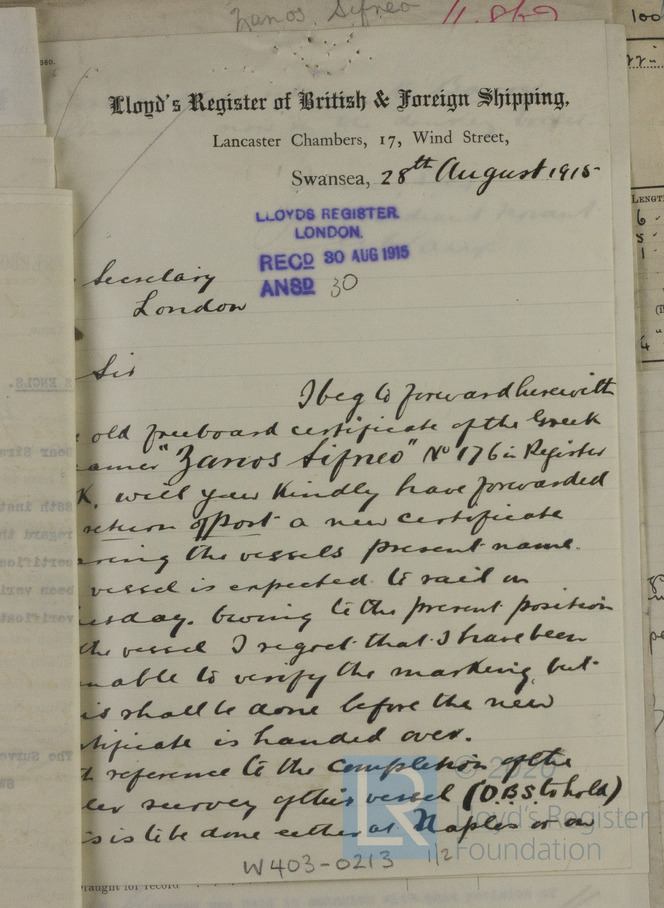 Zanos Sifneo 11.869
Lloyd's Register of British & Foreign Shipping,
Lancaster Chambers, 17, Wind Street,
Swansea, 28th August 1915
LLOYDS REGISTER.
LONDON.
RECD 30 AUG 1915
ANSD 30
Secretary
London
Sir
I beg to forward herewith
old freeboard certificate of the Greek
eamer "Zanos Sifneo" No 176 in Register
K. will you kindly have forwarded
return of Post a new certificate
aring the vessels present name.
vessel is expected to sail on
esday. Owing to the present position
the vessel I regret that I have been
nable to verify the marking, but
is shall be done before the new
rtificate is handed over.
th reference to the completion of the
ler survey of this vessel (O.B.S to hold)
s is to be done either at Naples or on
W403-0213 1/2
© 2020
Lloyd's Register
Foundation
LR
raught for record
ENCLS.
Dear Sir
28th inst
regard th
certific
been veri
verificat
The Surve
LENGTH